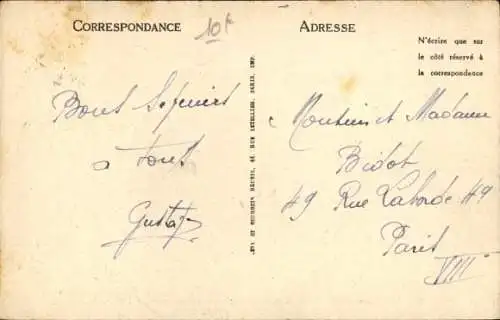 CORRESPONDANCE
10f
ADRESSE
N'écrire que sur
le côté réservé à
la correspondance
Bons Sifenirs
a Tous
Gustav
Monsieur et Madame
Bidot
49 Rue Laborde 49
Paris
VIII